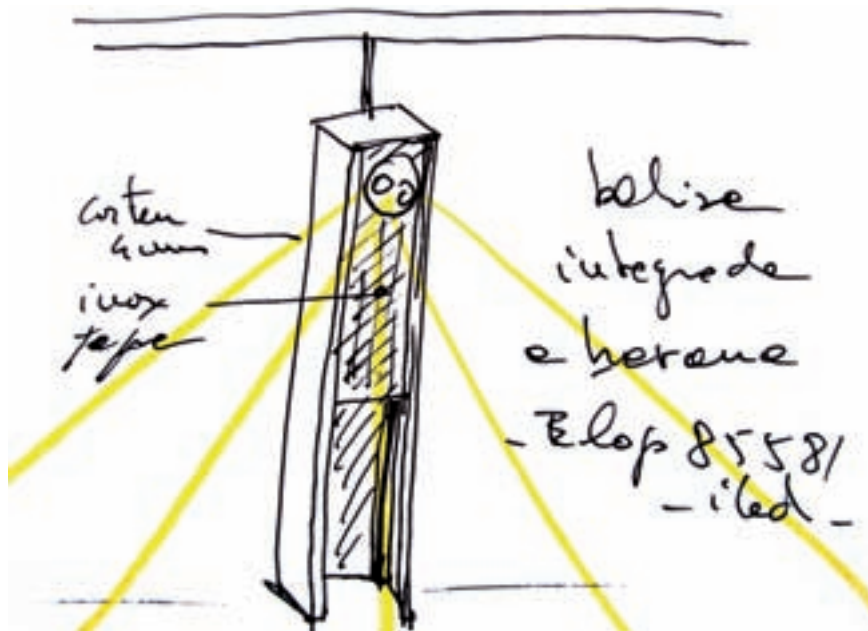 corten
4 mm
inox
tape
balise
integrada
a barana
- Elop 85581
- iled -